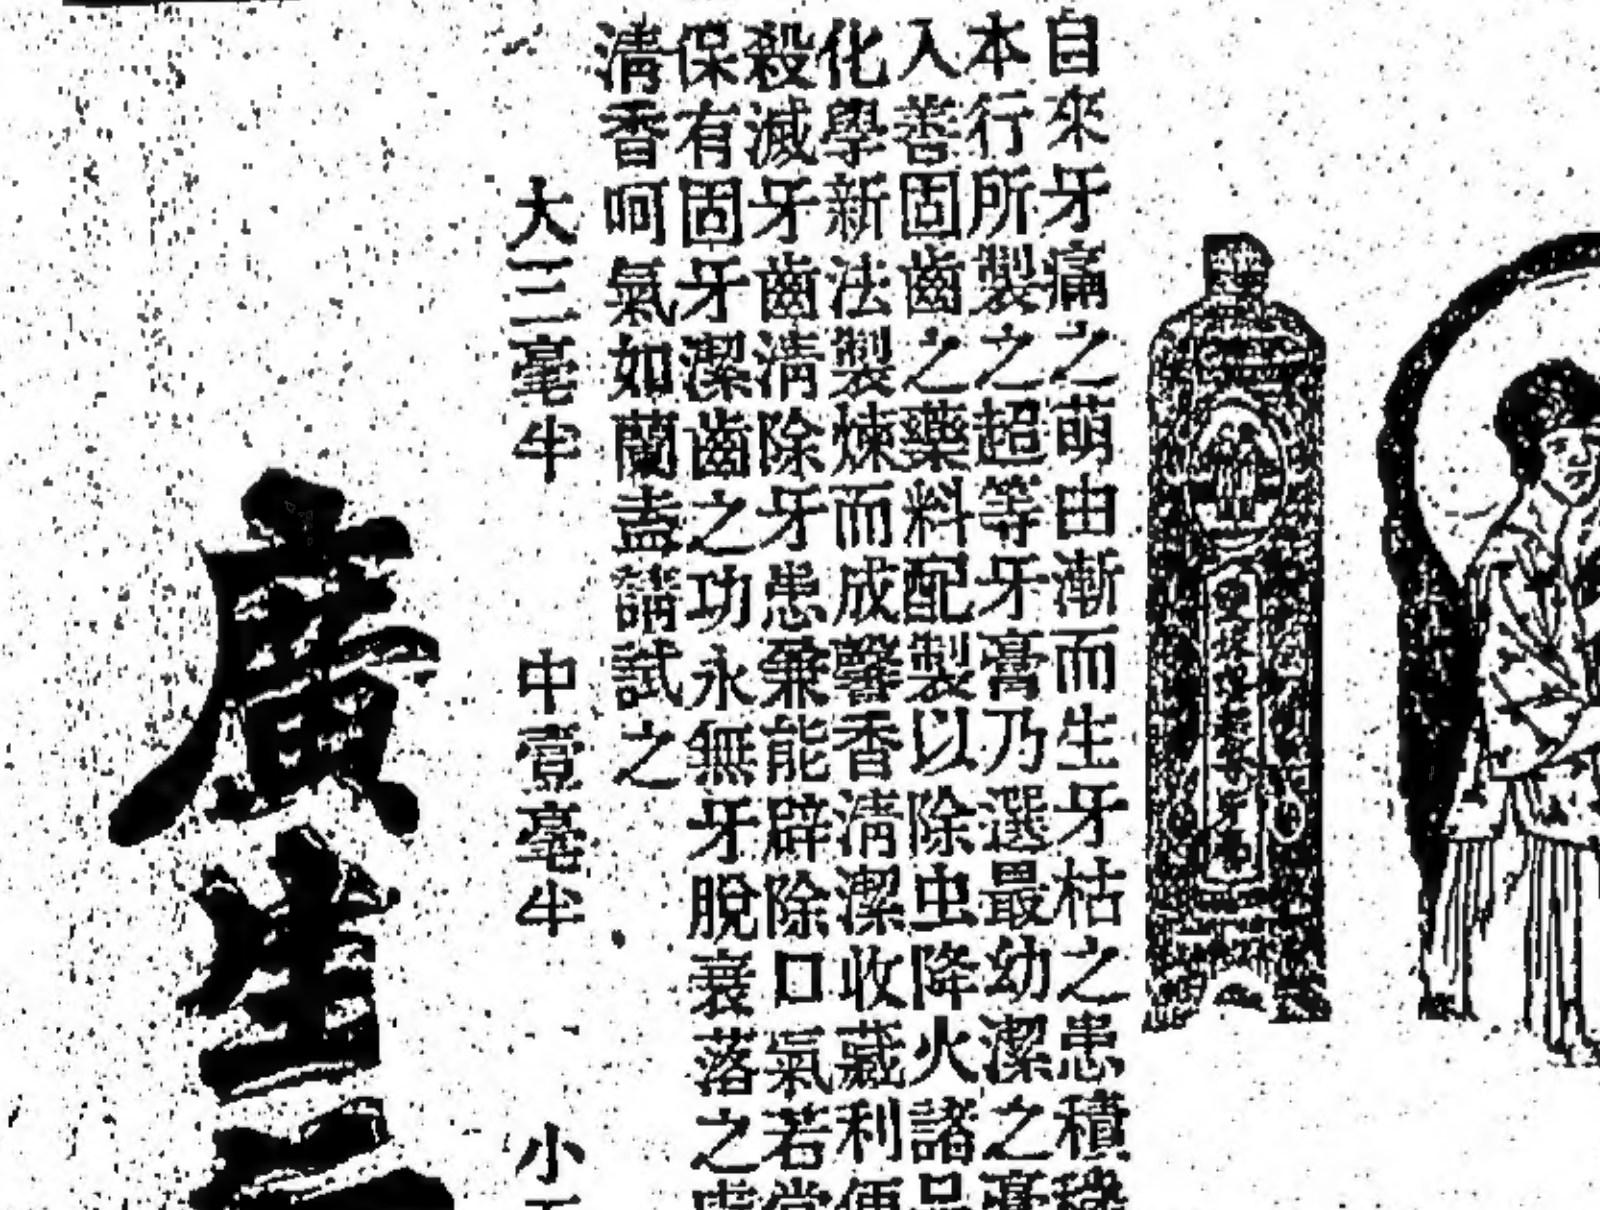 自來牙痛之萌由漸而生牙枯之患積
本行所製之超等牙膏乃選最幼潔之膏
入善固齒之藥料配製以除虫降火諸品
化學新法製煉而成馨香清潔收藏利便
殺滅牙齒清除牙患兼能辟除口氣若常
保有固牙潔齒之功永無牙脫衰落之
清香呵氣如蘭盍請試之
大三毫半 中壹毫半 小
廣生